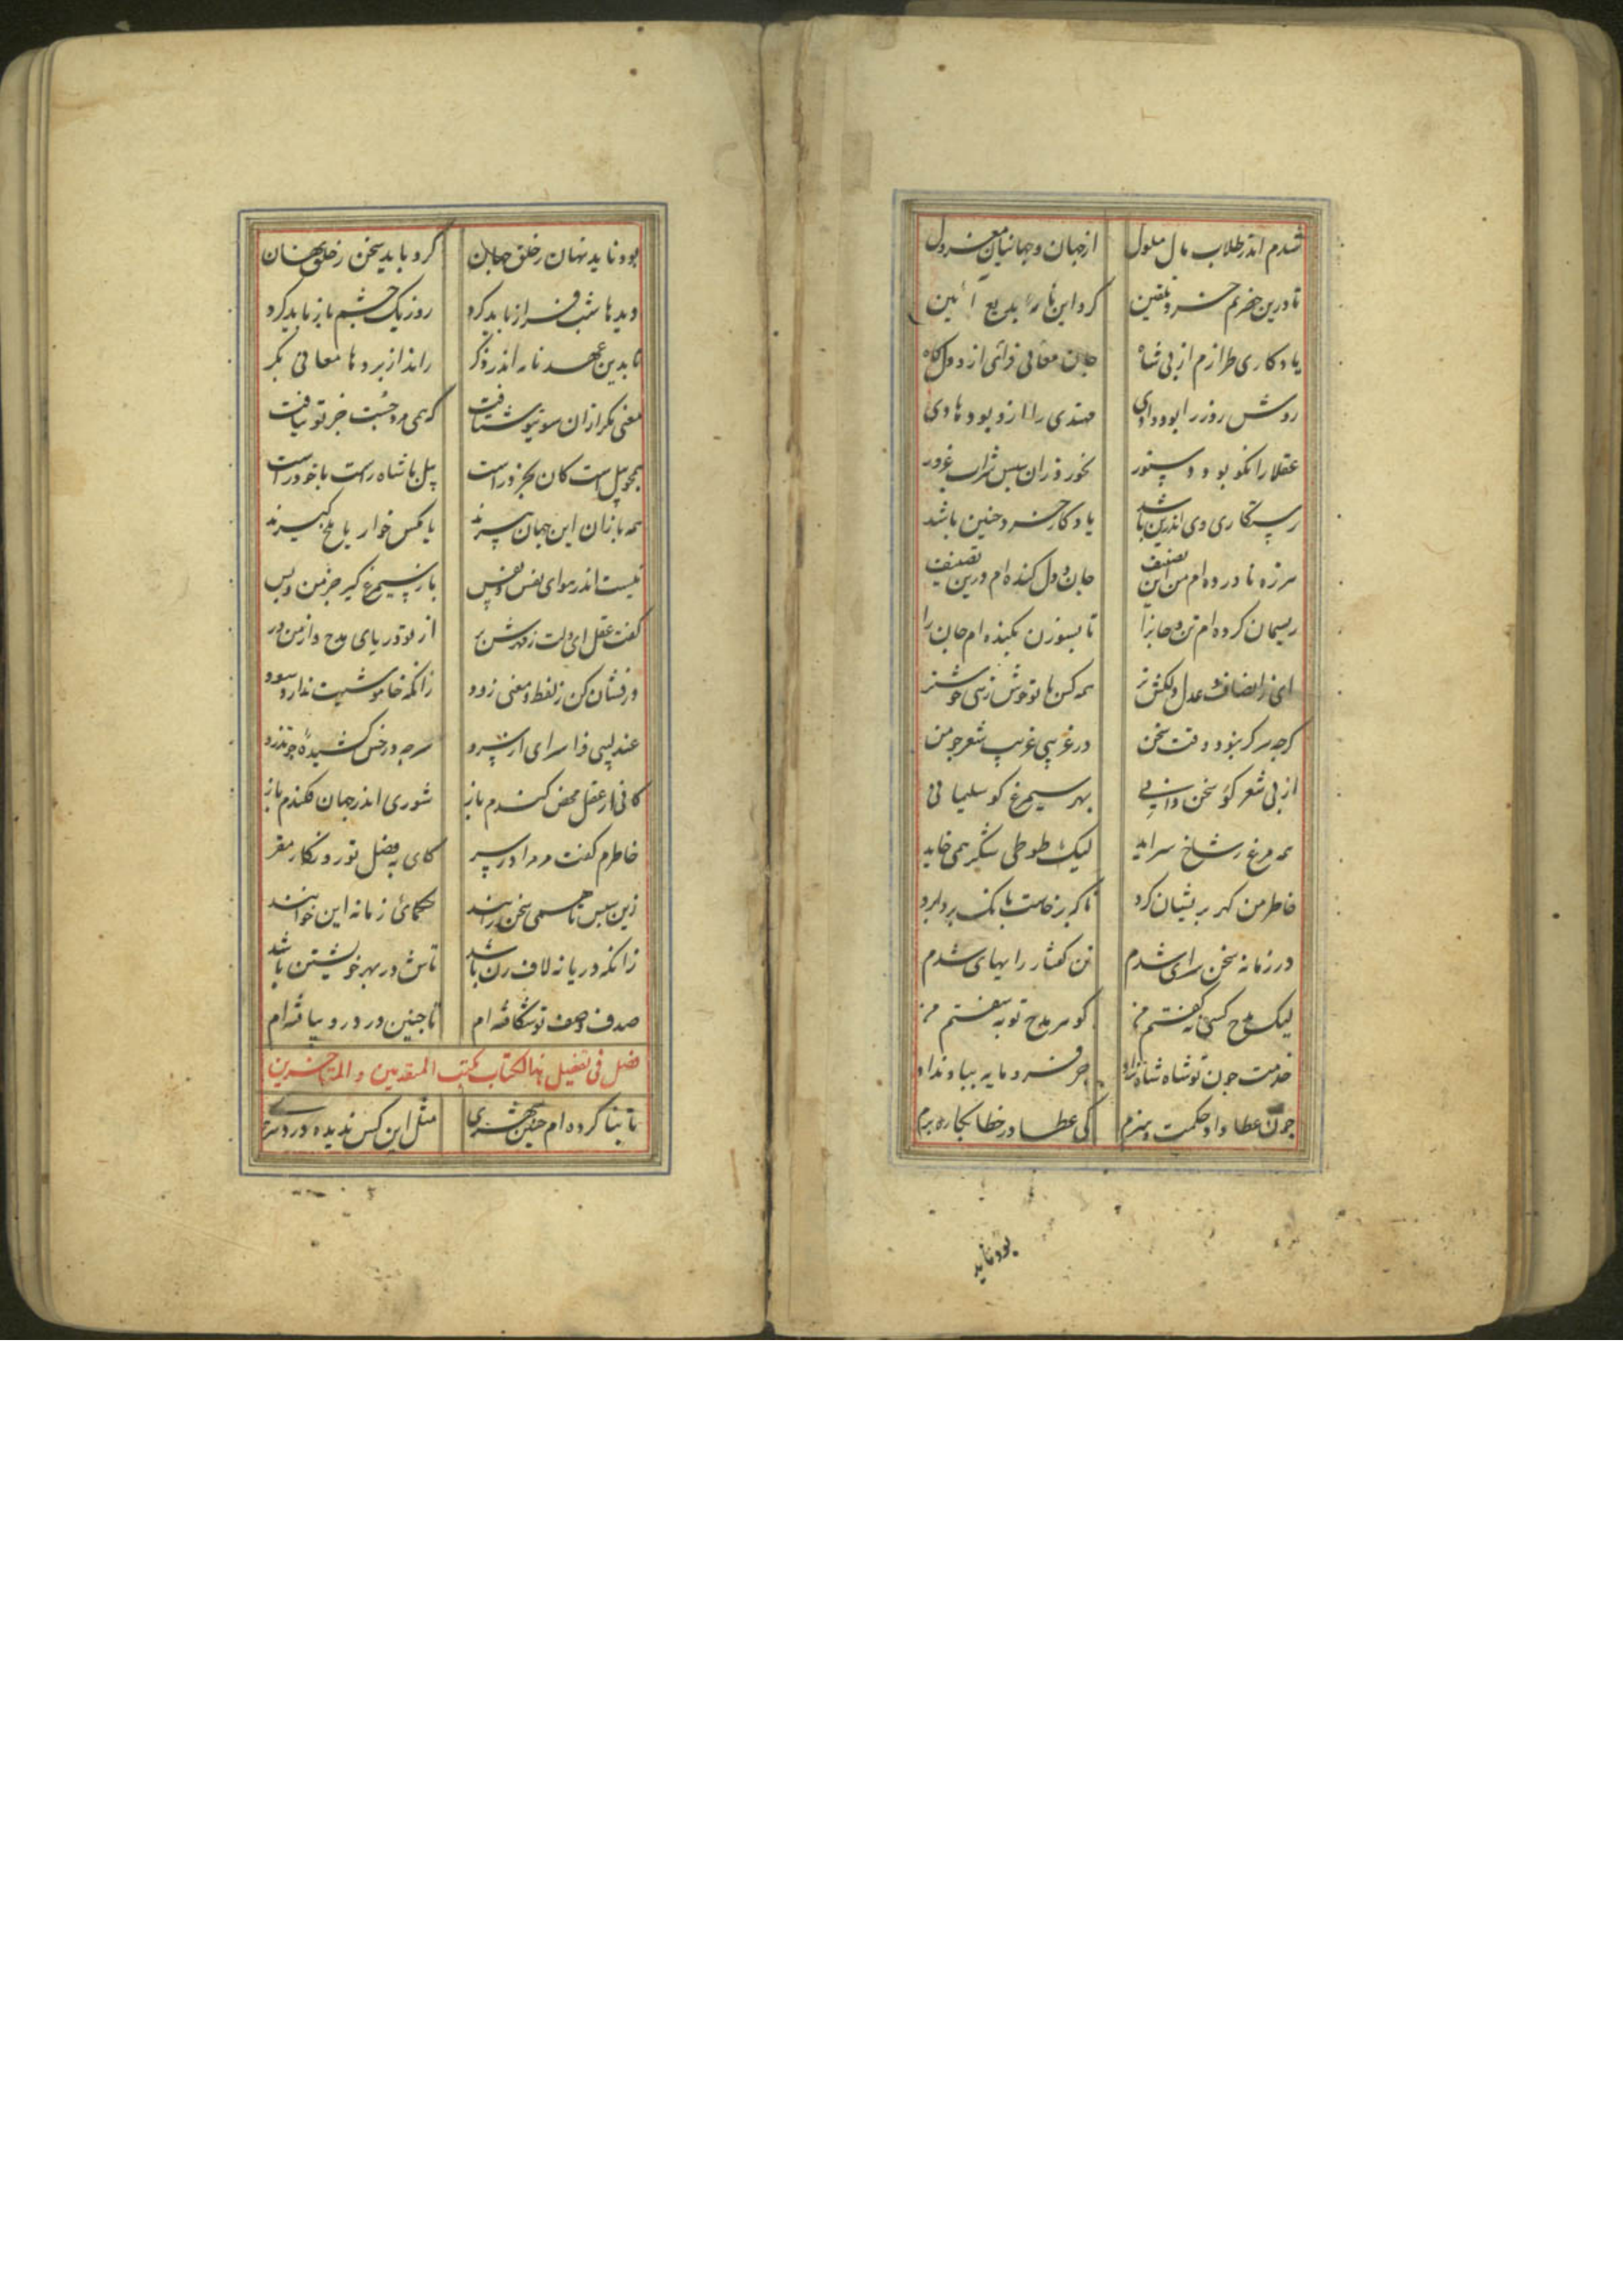 شدم اندر طلاب مال ملول از جهان و جهانیان معزول
تا درین حضرتم خرد تلقین کرد این نامه را بدیع آئین
یادکاری طرازم از پی شاه جان معانی فزای از دل کاه
روش روز را بود وادی مهتدی را ازو بود هادی
عقلا را نکو بود دستور نخورد زان سپس شراب غرور
رستکاری وی اندرین باشد یادکار خرد چنین باشد
هرزه نآورده ام من این تصنیف جان و دل کنده ام درین تصنیف
ریسمان کرده ام تن و جانرا تا بسوزن بکنده ام جان را
ای ز انصاف و عدل دلکش تر همه کس با تو خوش زهی خوشتر
کرچه هرکز نبود وقت سخن در غریبی غریب شعر چو من
از پی شعر کو سخن دانی بهر سیمرغ کو سلیمانی
همه مرغ ز شاخ سراید لیک طوطی شکر همی خاید
خاطر من کهر پریشان کرد تا که برخاست بانک بردابرد
در زمانه سخن سرای شدم تن کفتار را بهای شدم
لیک مدح کسی نکفتم من کوهر مدح تو بسفتم من
خدمت چون تو شاه شاه نژاد جز فرومایه بباد نداد
چون عطا داد حکمت و هنرم کی عطا در خطا بکار برم
بود ناید
بود ناید نهان ز خلق جهان کرد باید سخن ز خلق نهان
دیدها شب فراز باید کرد روز یک چشم باز باید کرد
تا بدین عهد نامه اندر ذکر راند از پردها معانی بکر
معنی بکر از آن سوی تو شتافت که همی مرد جست جز تو نیافت
همچو پیل است کان نکو در است پیل با شاه راست یا خود راست
همه بازان این جهان پیرند یا مکس خوار یا ملخ کیرند
نیست اندر هوای نفس و نفس باز سیمرغ کیر جز من و بس
کفت عقل ای دلت ز مهرش پر از تو دریای مدح و از من در
درفشان کن ز لفظ و معنی زود زانکه خاموشیت ندارد سود
عندلیبی نوا سرای از سرو سر چه در خس کشیدۀ چو تذرو
کانی از عقل محض کندم باز شوری اندر جهان فکندم باز
خاطرم کفت مر مرا در سر کای بفضل تو روزکار مقر
زین سپس تا همی سخن رانند حکمای زمانه این خوانند
زانکه دریا نه لاف زن باشد تاش در بهر خویشتن باشد
صدف وصف تو شکافته ام تا چنین در درو بیافته ام
فصل فی تفضیل هذا الکتاب بکتب المتقدمین و المتاخرین
تا بنا کرده ام چنین شهری مثل این کس ندیده در دهری